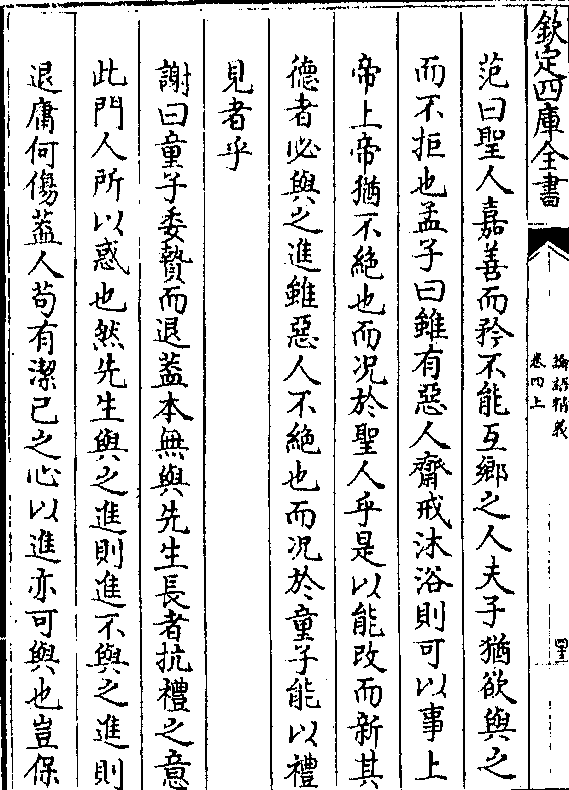 欽定四庫全書
論語精義
卷四上
范曰聖人嘉善而矜不能互鄉之人夫子猶欲與之
而不拒也孟子曰雖有惡人齋戒沐浴則可以事上
帝上帝猶不絶也而况於聖人乎是以能改而新其
德者必與之進雖惡人不絶也而况於童子能以禮
見者乎
謝曰童子委贄而退葢本無與先生長者抗禮之意
此門人所以惑也然先生與之進則進不與之進則
退庸何傷葢人苟有潔己之心以進亦可與也豈保